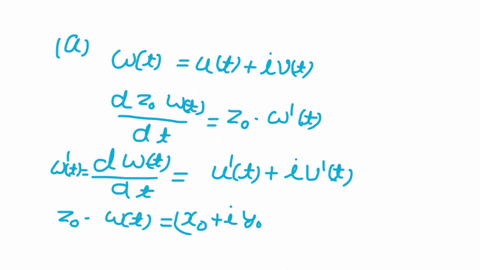 (a) ω(t) = u(t) + i v(t)
d z₀ ω(t) / d t = z₀ · ω'(t)
ω'(t) = d ω(t) / d t = u'(t) + i v'(t)
z₀ · ω(t) = (x₀ + i y₀